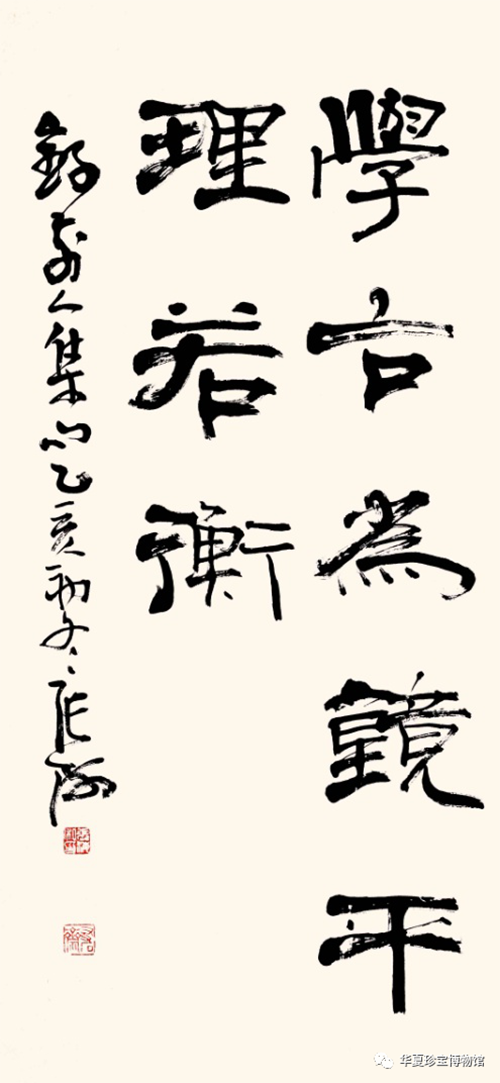 學古為鏡平
理若衡
前人集句乙亥初冬張海
华夏珍宝博物馆